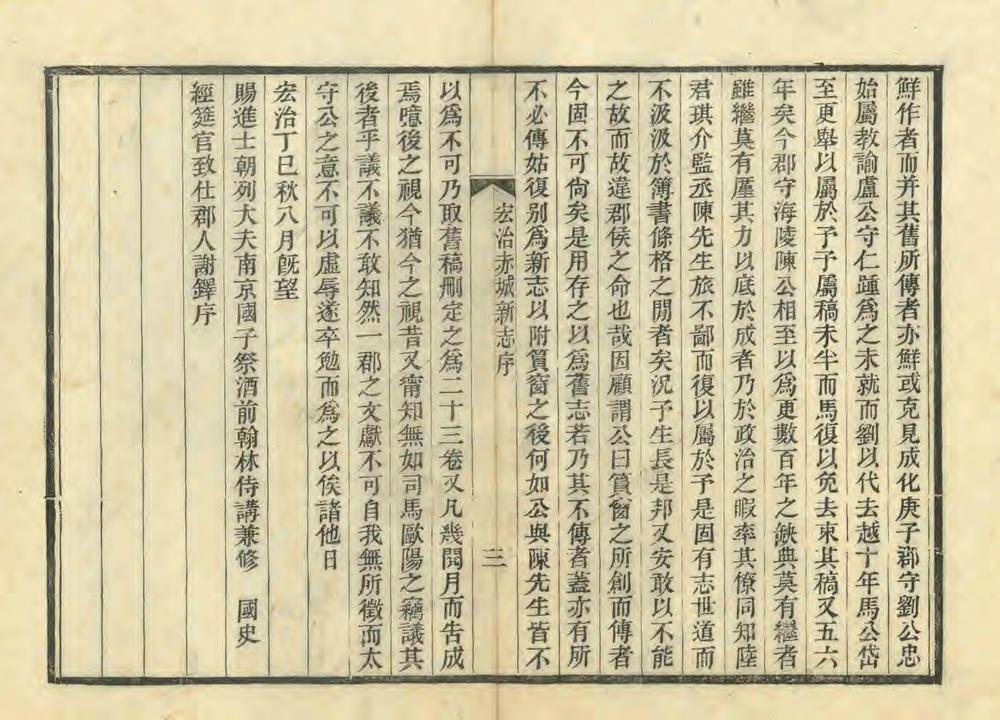 鮮作者而并其舊所傳者亦鮮或克見成化庚子郡守劉公忠
始屬教諭盧公守仁踵爲之未就而劉以代去越十年馬公岱
至更舉以屬於予予屬稿未半而馬復以免去束其稿又五六
年矣今郡守海陵陳公相至以爲更數百年之缺典莫有繼者
雖繼莫有厪其力以底於成者乃於政治之暇率其僚同知陸
君琪介監丞陳先生旅不鄙而復以屬於予是固有志世道而
不汲汲於簿書條格之間者矣況予生長是邦又安敢以不能
之故而故違郡侯之命也哉因顧謂公曰篔窗之所創而傳者
今固不可尙矣是用存之以爲舊志若乃其不傳者蓋亦有所
不必傳姑復别爲新志以附篔窗之後何如公與陳先生皆不
宏治赤城新志序
三
以爲不可乃取舊稿刪定之爲二十三卷又凡幾閱月而告成
焉噫後之視今猶今之視昔又甯知無如司馬歐陽之竊議其
後者乎議不議不敢知然一郡之文獻不可自我無所徵而太
守公之意不可以虛辱遂卒勉而爲之以俟諸他日
宏治丁巳秋八月旣望
賜進士朝列大夫南京國子祭酒前翰林侍講兼修　國史
經筵官致仕郡人謝鐸序